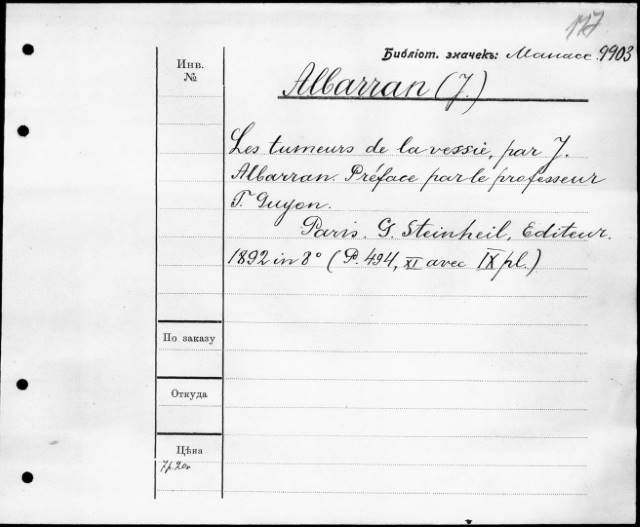 117
Библіот. значекъ: Манасс. 9903
Инв.
№
Albarran (J.)
Les tumeurs de la vessie, par J.
Albarran. Préface par le professeur
F. Guyon.
Paris. G. Steinheil, Editeur.
1892 in 8° (P. 494, XI avec IX pl.)
По заказу
Откуда
Цѣна
7р. 20к